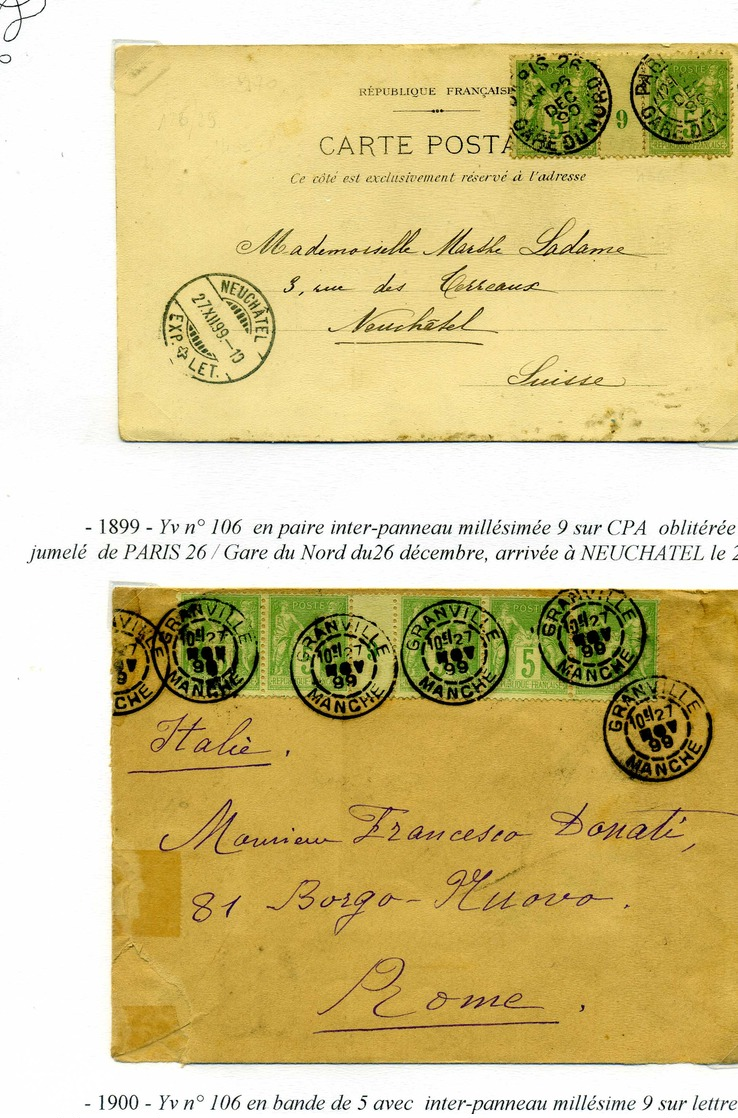 RÉPUBLIQUE FRANÇAIS
CARTE POSTA
Ce côté est exclusivement réservé à l'adresse
PARIS 26
26
DEC
99
GARE DU NORD
POSTE
5
RÉPUBLIQUE FRANÇAISE
9
Mademoiselle Marthe Ladame
3, rue des Terreaux
Neuchâtel
Suisse
NEUCHÂTEL
27.XII.99.-10
EXP. LET.
- 1899 - Yv n° 106 en paire inter-panneau millésimée 9 sur CPA oblitérée
jumelé de PARIS 26 / Gare du Nord du26 décembre, arrivée à NEUCHATEL le 2
GRANVILLE
10E/27
99
MANCHE
GRANVILLE
10E/27
99
MANCHE
GRANVILLE
10E/27
99
MANCHE
POSTE
5
RÉPUBLIQUE FRANÇAISE
GRANVILLE
10E/27
99
MANCHE
GRANVILLE
10E/27
99
MANCHE
Italie.
Monsieur Francesco Donati,
81 Borgo-Nuovo.
Rome.
- 1900 - Yv n° 106 en bande de 5 avec inter-panneau millésime 9 sur lettre